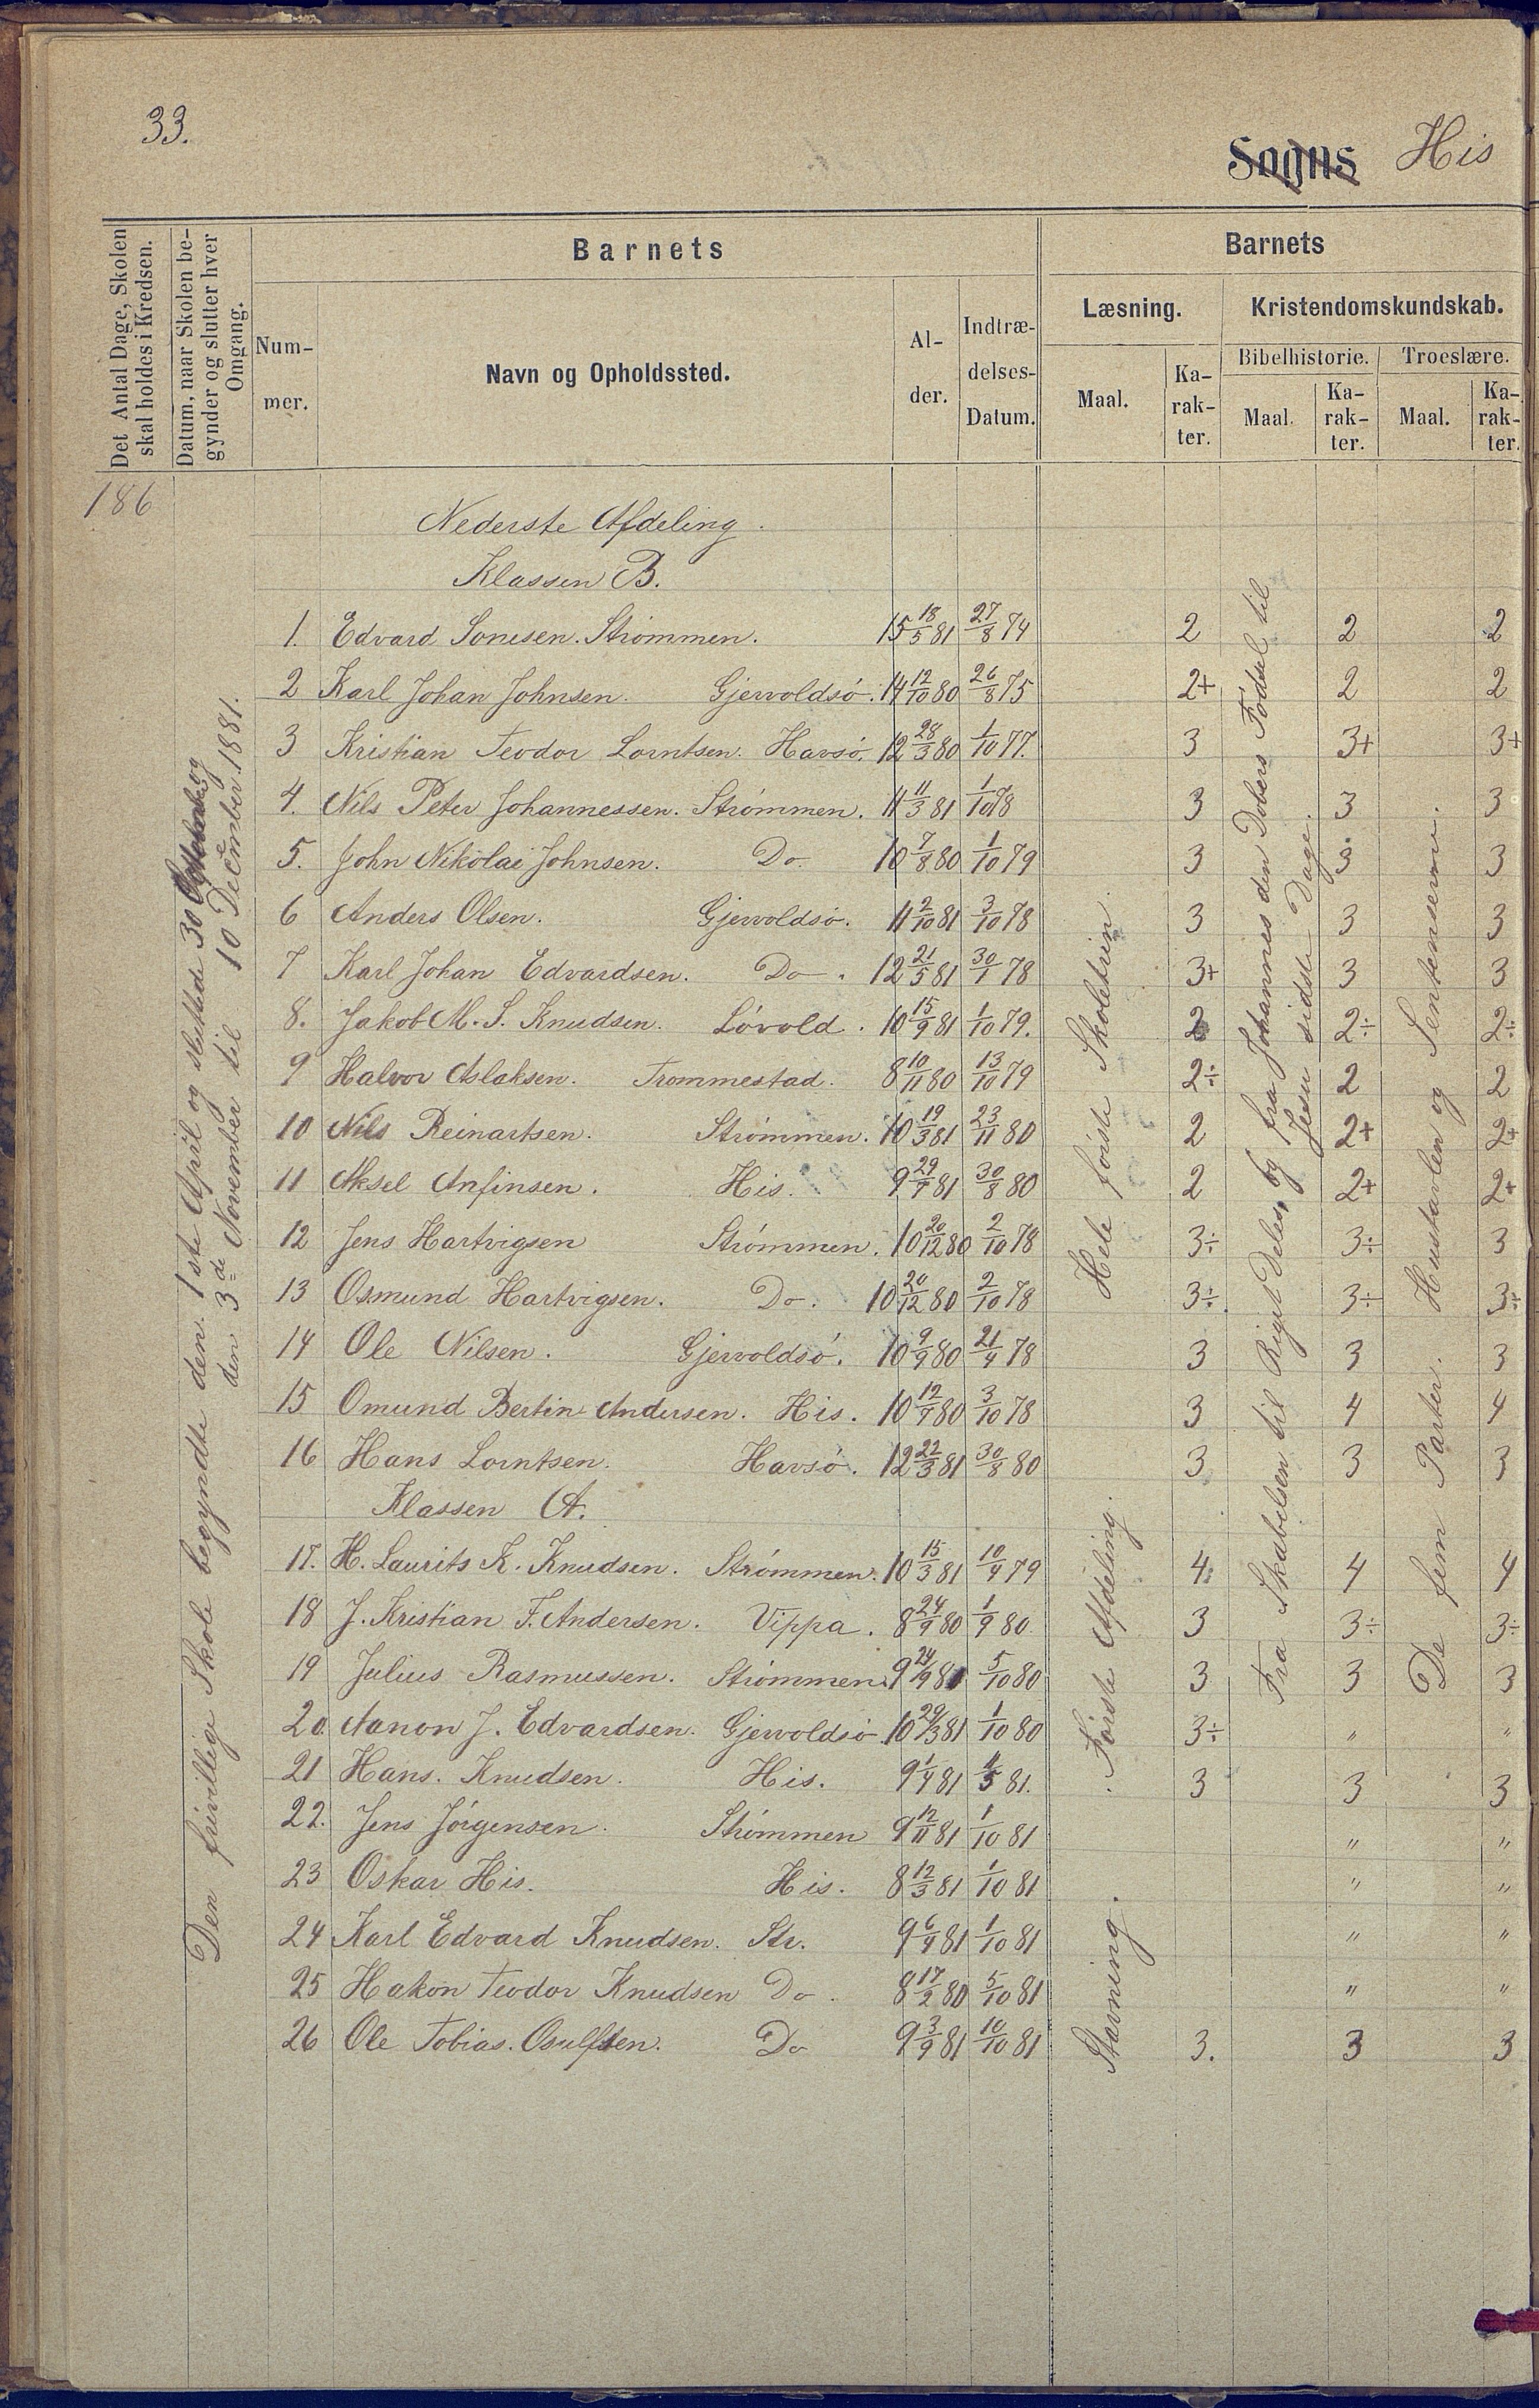 33.
Sogns His
Det Antal Dage, Skolen
skal holdes i Kredsen.
Datum, naar Skolen be-
gynder og slutter hver
Omgang.
Barnets
Num-
mer.
Navn og Opholdssted.
Al-
der.
Indtræ-
delses-
Datum.
Barnets
Læsning.
Maal.
Ka-
rak-
ter.
Kristendomskundskab.
Bibelhistorie.
Maal.
Ka-
rak-
ter.
Troeslære.
Maal.
Ka-
rak-
ter.
186
Den frivillige Skole begyndte den 1ste April og sluttede 30 og
den 3de November til 10 December 1881.
Nederste Afdeling.
Klassen B.
1. Edvard Strømmen. 15 18/5 81 27/8 74 2 2 2
2 Karl Johan Johnsen. Gjervoldsö. 14 12/10 80 26/8 75 2+ 2 2
3 Kristian Teodor Lorntsen. Havsö. 12 28/3 80 1/10 77. 3 3+ 3+
4. Nils Peter Johannessen. Strömmen. 11 11/3 81 1/10 78 3 3 3
5. John Nikolai Johnsen. Do 10 7/8 80 1/10 79 3 3 3
6 Anders Olsen. Gjervoldsö. 11 2/10 81 3/10 78 3 3 3
7 Karl Johan Edvardsen. Do. 12 21/5 81 30/1 78 3+ 3 3
8. Jakob M. S. Knudsen. Lövold. 10 15/9 81 1/10 79. 2 2÷ 2÷
9 Halvor Aslaksen. Trommestad. 8 10/11 80 13/10 79 2÷ 2 2
10 Nils Reinartsen. Strömmen. 10 19/3 81 23/11 80 2 2+ 2+
11 Aksel Anfinsen. His. 9 29/9 81 30/8 80 2 2+ 2+
12 Jens Hartvigsen Strömmen. 10 20/12 80 2/10 78 3÷ 3÷ 3
13 Osmund Hartvigsen. Do. 10 20/12 80 2/10 78 3÷ 3÷ 3÷
14 Ole Nilsen. Gjervoldsö. 10 9/9 80 21/4 78 3 3 3
15 Omund Bertin Andersen. His. 10 12/9 80 3/10 78 3 4 4
16 Hans Lorntsen. Havsö. 12 22/3 81 30/8 80 3 3 3
Klassen A.
17. H. Laurits K. Knudsen. Strömmen. 10 15/3 81 10/4 79 4. 4 4
18 J. Kristian F. Andersen. Vippa. 8 24/9 80 1/9 80 3 3÷ 3÷
19 Julius Rasmussen. Strömmen. 9 24/9 81 5/10 80 3 3 3
20. Aanon J. Edvardsen. Gjervoldsö. 10 29/3 81 1/10 80 3÷ " "
21 Hans. Knudsen. His. 9 1/4 81 81. 3 3 3
22. Jens Jörgensen. Strömmen 9 12/11 81 1/10 81 " "
23 Oskar His. His. 8 12/3 81 1/10 81 " "
24 Karl Edvard Knudsen. Str. 9 6/4 81 1/10 81 " "
25 Hakon Teodor Knudsen Do. 8 17/2 80 5/10 81 " "
26 Ole Tobias. Do 9 3/9 81 10/10 81 3. 3 3
Hele förste Skoletrin
Förste Afdeling.
Stavning.
Fra Skabelsen til Rigets Deles, og fra Johannes den Döbers Födsel til
Jesu sidste Dage.
De fem Parter. Hustavlen og Sentenserne.